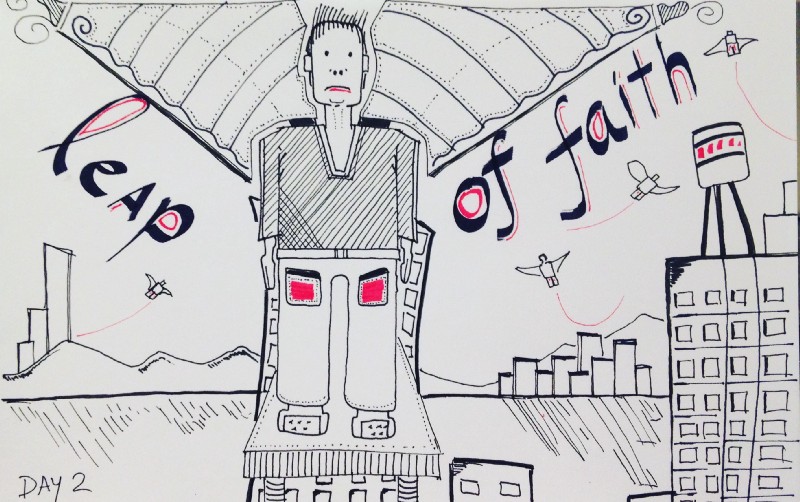 leap
of faith
DAY 2